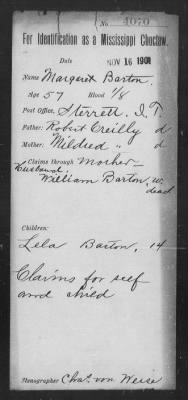 No. 4070
For Identification as a Mississippi Choctaw.
Date NOV 16 1901
Name Margaret Barton.
Age 57 Blood 1/8
Post Office, Sterrett, I.T.
Father: Robert Creilly d
Mother: Mildred " d
Claims through Mother
Husband,
William Barton, w.
dead
Children:
Lela Barton, 14
Claims for self
and child
Stenographer Chas. von Weise